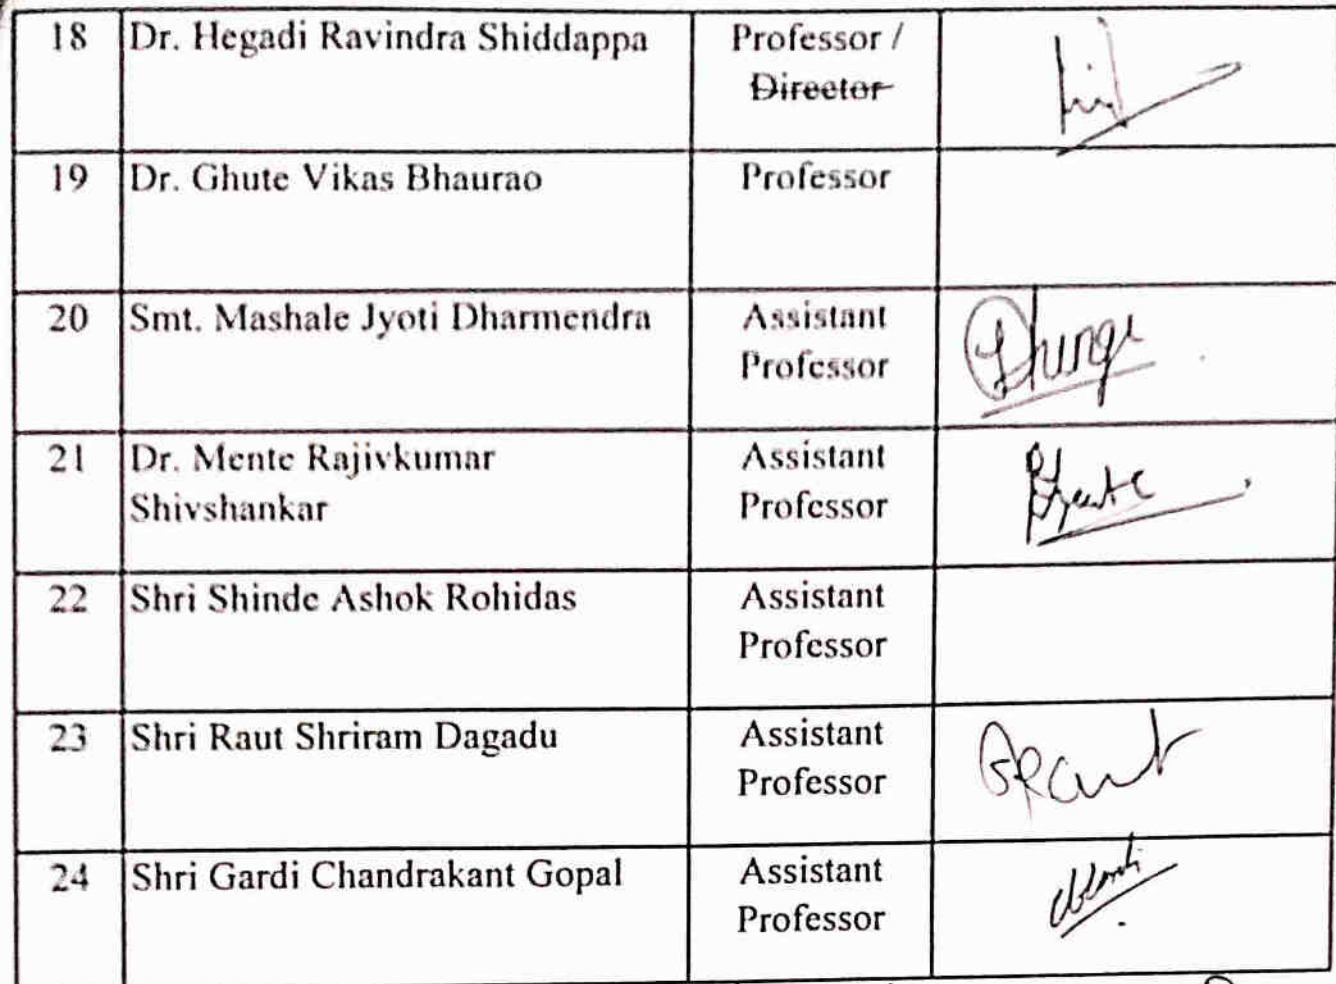 18 Dr. Hegadi Ravindra Shiddappa Professor /
Director
19 Dr. Ghute Vikas Bhaurao Professor
20 Smt. Mashale Jyoti Dharmendra Assistant
Professor
21 Dr. Mente Rajivkumar Assistant
Shivshankar Professor
22 Shri Shinde Ashok Rohidas Assistant
Professor
23 Shri Raut Shriram Dagadu Assistant
Professor
SRaut
24 Shri Gardi Chandrakant Gopal Assistant
Professor